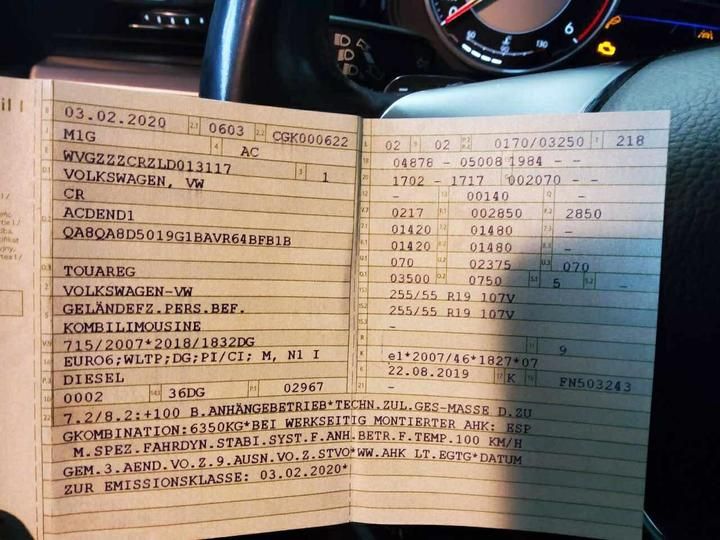 03.02.2020 2.1 0603 2.2 CGK000622
M1G 4 AC
WVGZZZCRZLD013117 3 1
VOLKSWAGEN, VW
CR
ACDEND1
QA8QA8D5019G1BAVR64BFB1B
TOUAREG
VOLKSWAGEN-VW
GELÄNDEFZ.PERS.BEF.
KOMBILIMOUSINE
715/2007*2018/1832DG
EURO6;WLTP;DG;PI/CI; M, N1 I
DIESEL
0002 36DG 02967
L 02 9 02 0170/03250 T 218
04878 - 05008 1984 - -
1702 - 1717 002070 - -
- 00140 -
0217 002850 2850
01420 01480 - -
01420 01480 - -
070 02375 070
03500 0750 5 -
255/55 R19 107V
255/55 R19 107V
-
- 9
e1*2007/46*1827*07
22.08.2019 17 K FN503243
-
7.2/8.2:+100 B.ANHÄNGEBETRIEB*TECHN.ZUL.GES-MASSE D.ZU
GKOMBINATION:6350KG*BEI WERKSEITIG MONTIERTER AHK: ESP
M.SPEZ.FAHRDYN.STABI.SYST.F.ANH.BETR.F.TEMP.100 KM/H
GEM.3.AEND.VO.Z.9.AUSN.VO.Z.STVO*WW.AHK LT.EGTG*DATUM
ZUR EMISSIONSKLASSE: 03.02.2020*
50 90 130
6